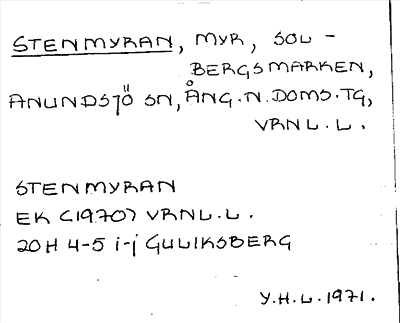 STENMYRAN, MYR, SOL-
BERGSMARKEN,
ANUNDSJÖ SN, ÅNG.N.DOMS.TG,
VRNL.L.
STENMYRAN
EK (1970) VRNL.L.
20H 4-5 i-j GULIKSBERG
Y.H.L.1971.